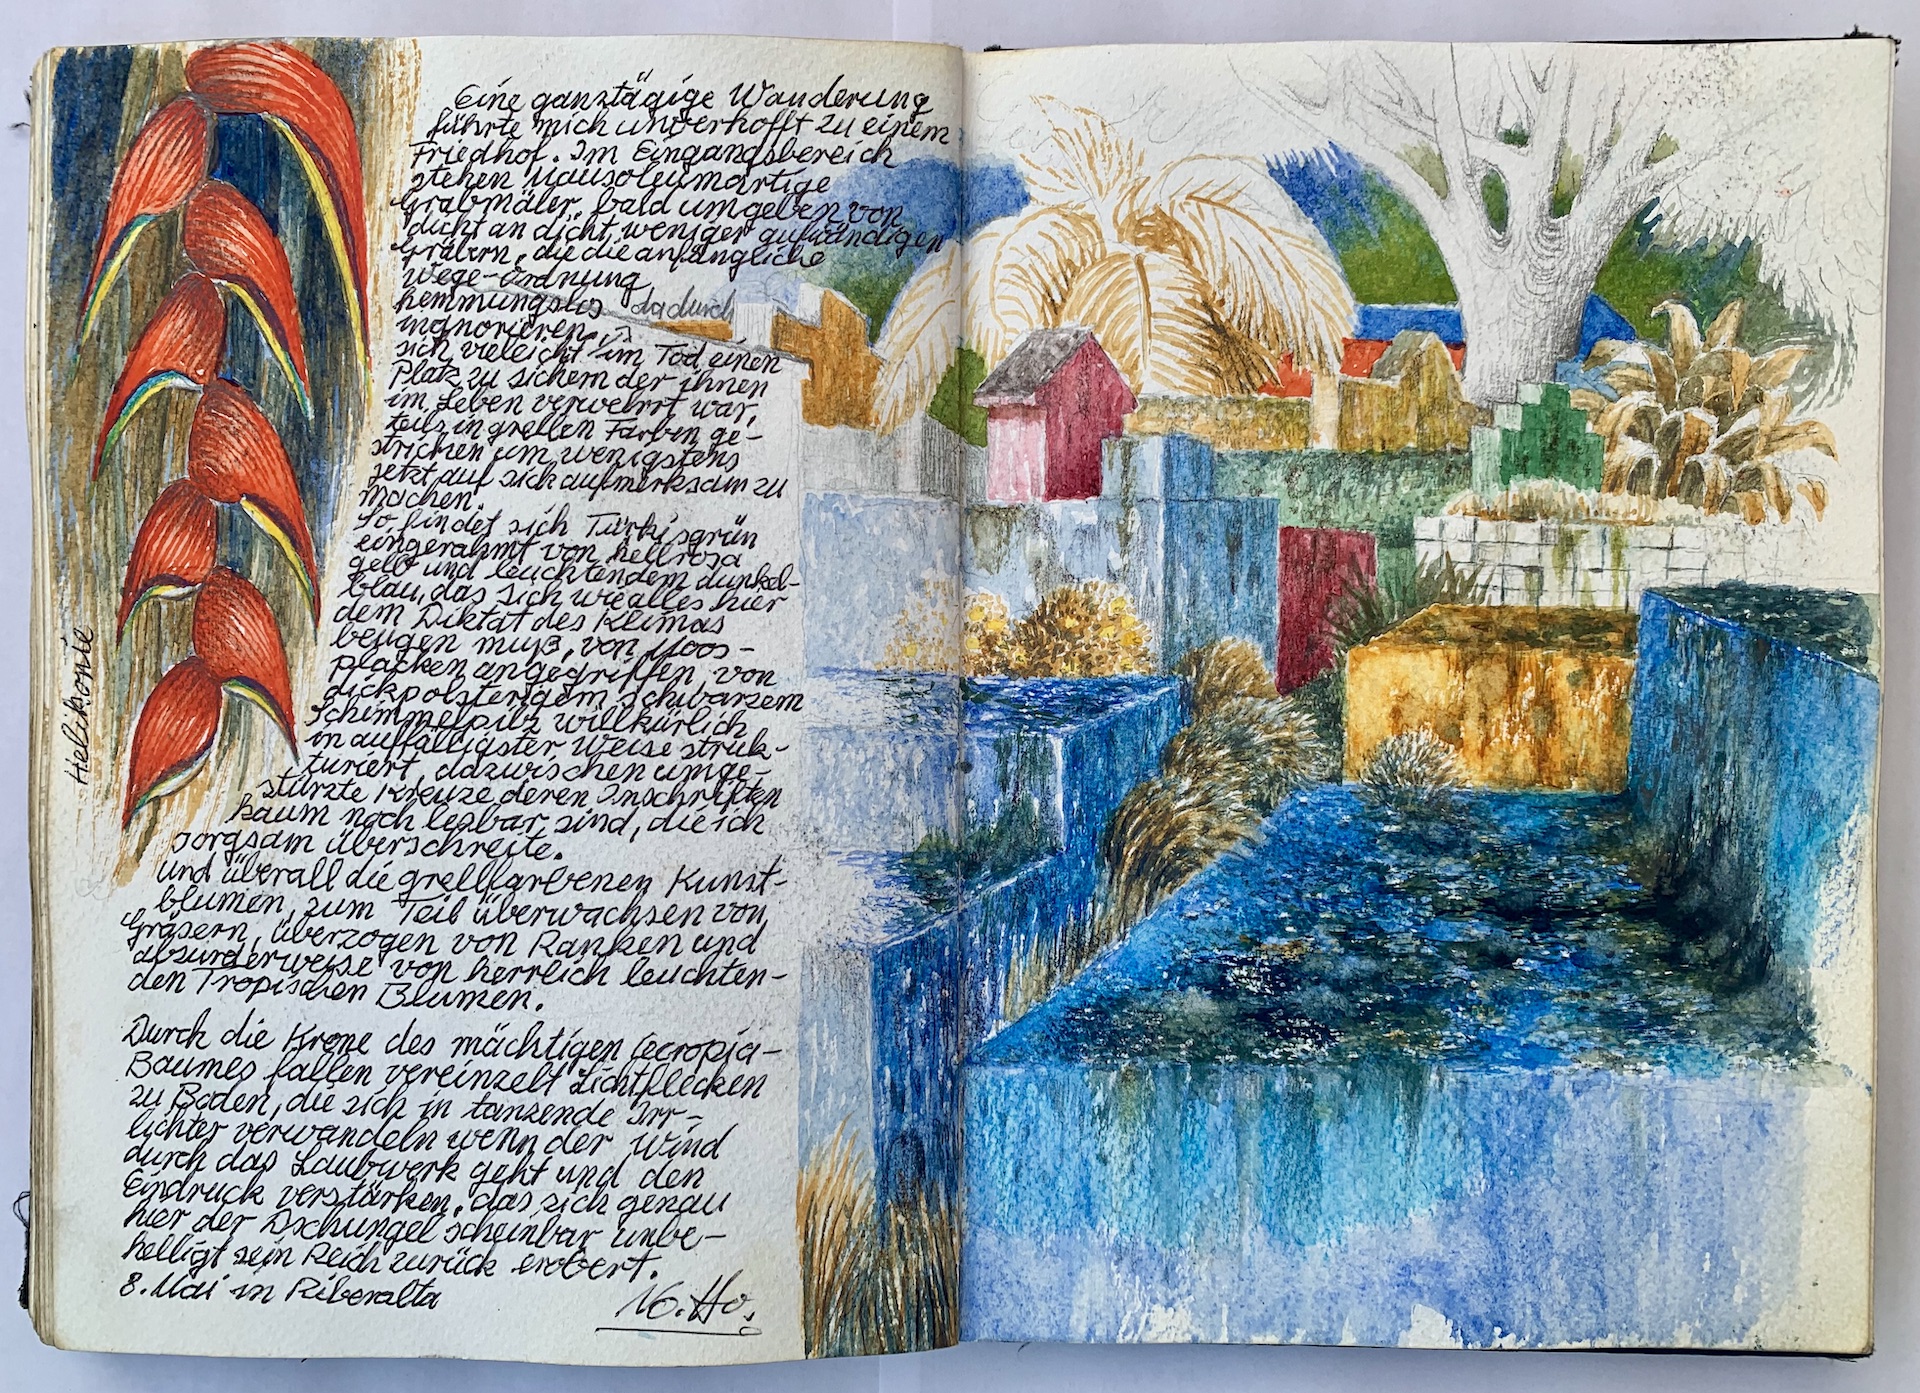 Eine ganztägige Wanderung
führte mich unverhofft zu einem
Friedhof. Im Eingangsbereich
stehen mausoleumartige
Grabmäler, bald umgeben von
dicht an dicht, weniger aufwändigen
Gräbern, die die anfängliche
Wege-Ordnung
hemmungslos dadurch
ingnorieren,
sich vieleicht im Tod einen
Platz zu sichern der ihnen
im Leben verwehrt war,
teils in grellen Farben ge-
strichen um wenigstens
jetzt auf sich aufmerksam zu
machen.
So findet sich Türkisgrün
eingerahmt von hellrosa
gelb und leuchtendem dunkel-
blau, das sich wie alles hier
dem Diktat des Klimas
beugen muß, von Moos-
placken angegriffen, von
dickpolsterigem schwarzem
Schimmelpilz willkürlich
in auffälligster Weise struk-
turiert, dazwischen umge-
stürzte Kreuze deren Inschriften
kaum noch lesbar sind, die ich
sorgsam überschreite.
Und überall die grellfarbenen Kunst-
blumen, zum Teil überwachsen von
Gräsern, überzogen von Ranken und
absurderweise von herrlich leuchten-
den Tropischen Blumen.
Durch die Krone des mächtigen Cecropia-
Baumes fallen vereinzelt Lichtflecken
zu Boden, die sich in tanzende Irr-
lichter verwandeln wenn der Wind
durch das Laubwerk geht und den
Eindruck verstärken, das sich genau
hier der Dschungel scheinbar unbe-
helligt sein Reich zurück erobert.
8. Mai in Riberalta
Helikonie